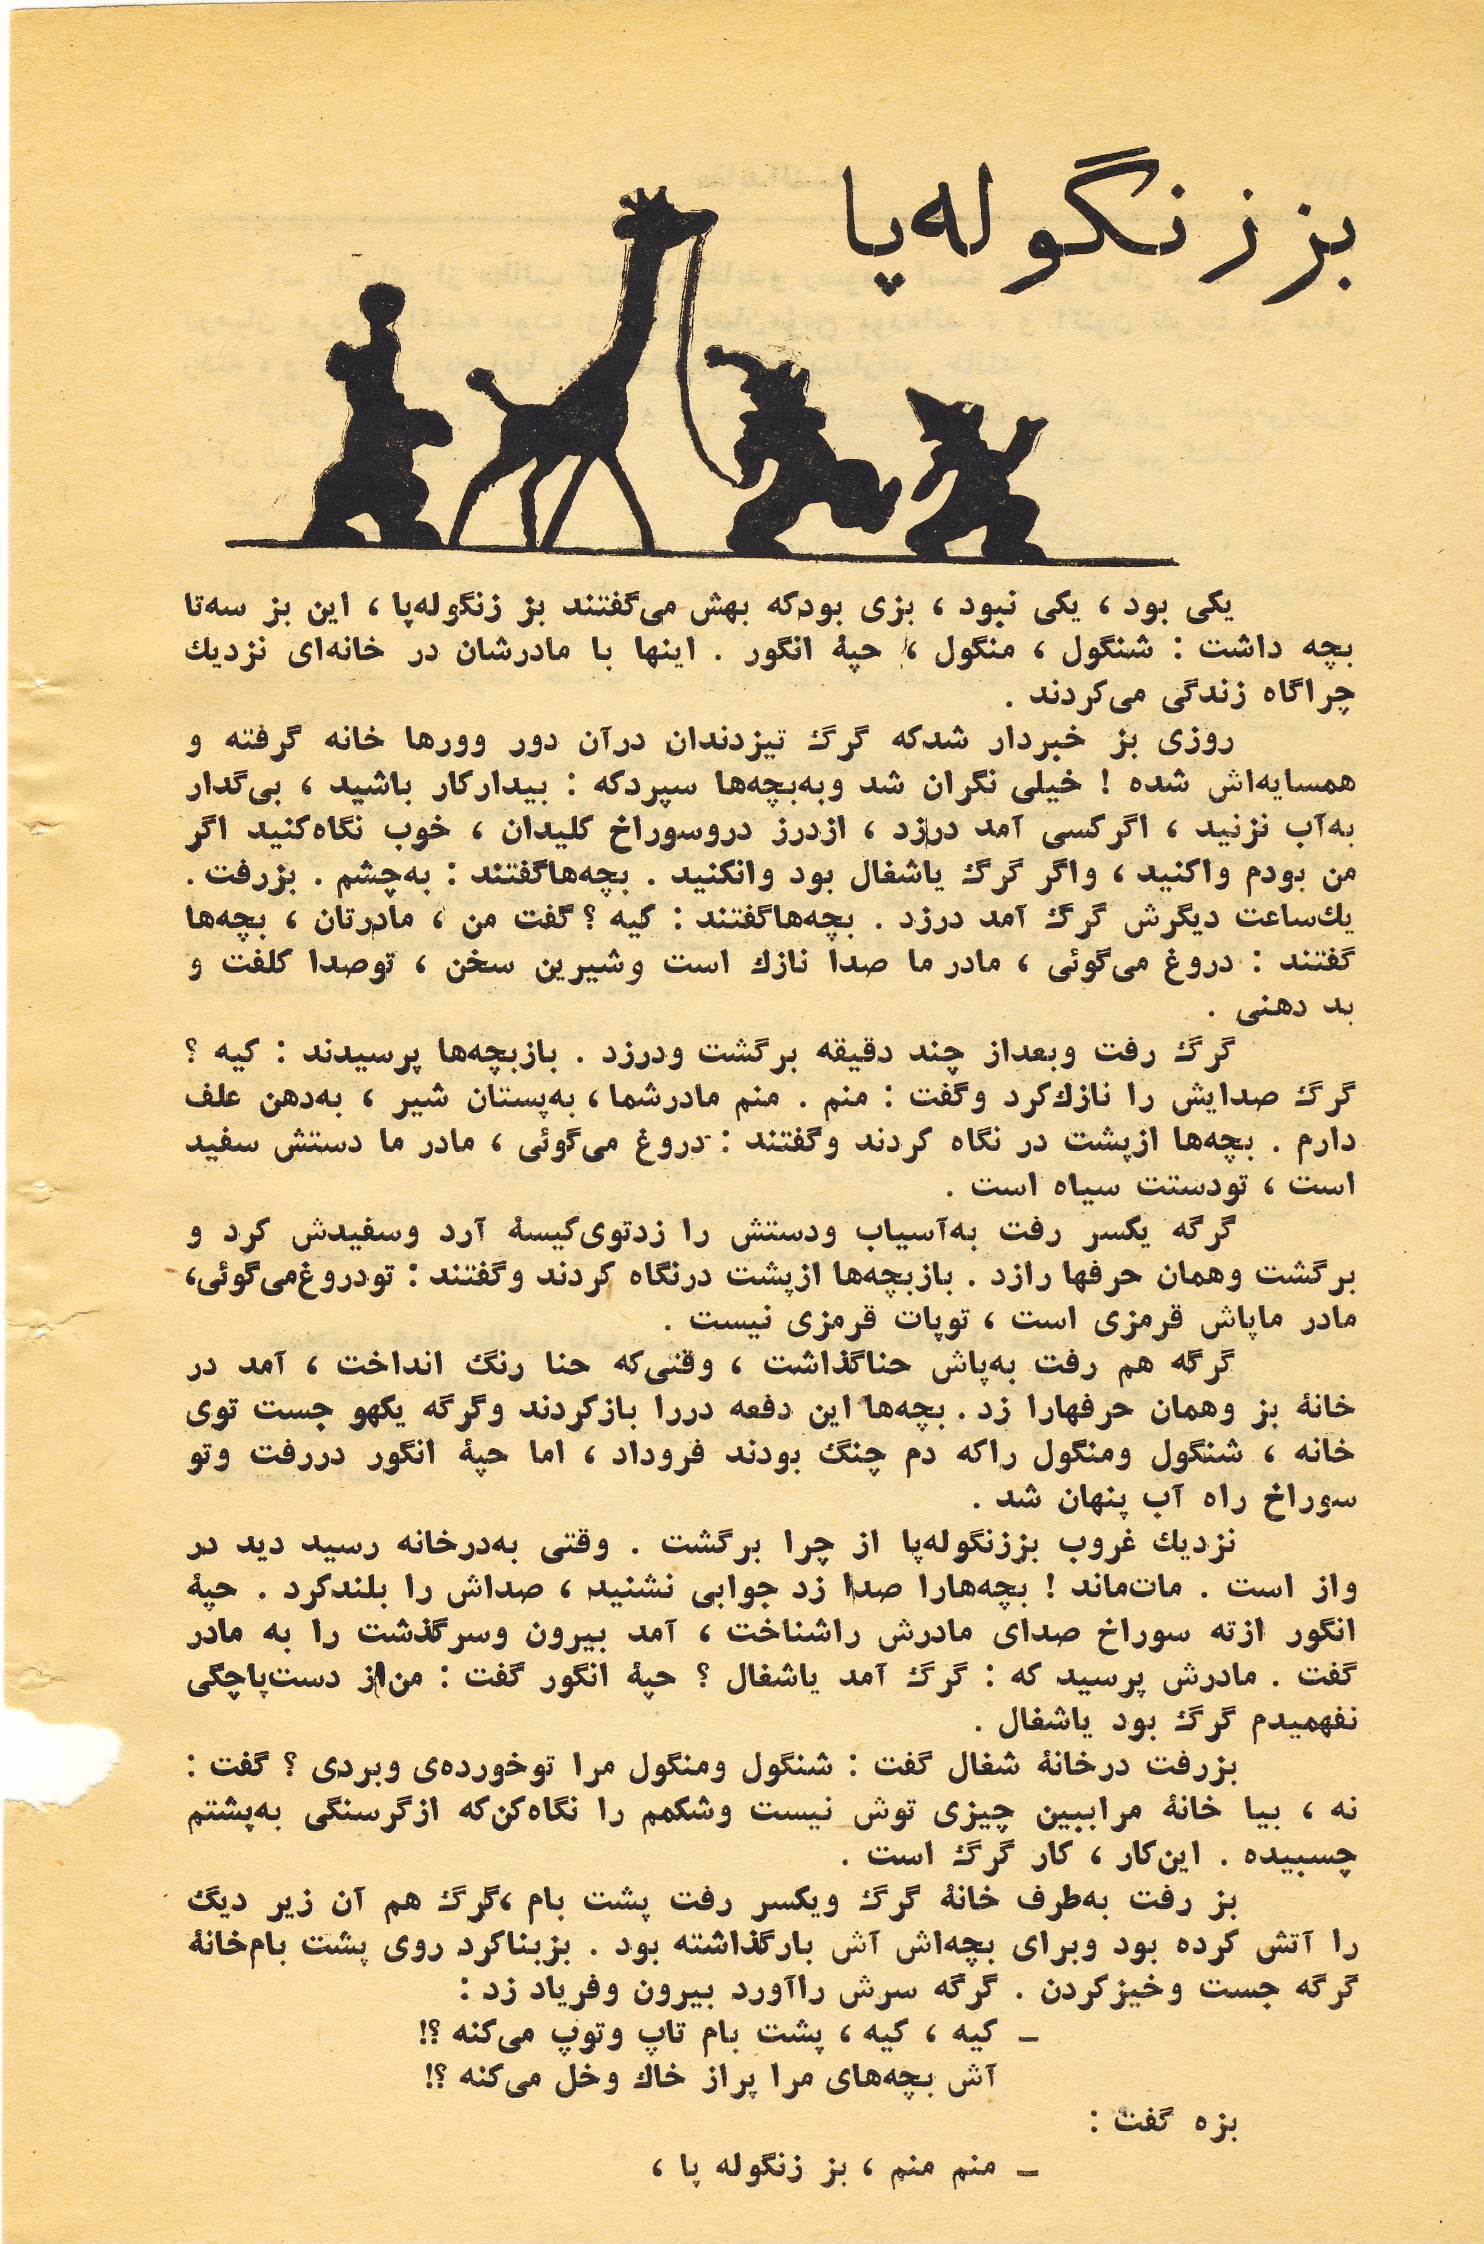 بز زنگوله‌پا
یکی بود ، یکی نبود ، بزی بودکه بهش می‌گفتند بز زنگوله‌پا ، این بز سه‌تا
بچه داشت : شنگول ، منگول ، حپهٔ انگور . اینها با مادرشان در خانه‌ای نزدیك
چراگاه زندگی می‌کردند .
روزی بز خبردار شدکه گرگ تیزدندان درآن دور وورها خانه گرفته و
همسایه‌اش شده ! خیلی نگران شد وبه‌بچه‌ها سپردکه : بیدارکار باشید ، بی‌گدار
به‌آب نزنید ، اگرکسی آمد درزد ، ازدرز دروسوراخ کلیدان ، خوب نگاه‌کنید اگر
من بودم واکنید ، واگر گرگ یاشغال بود وانکنید . بچه‌هاگفتند : به‌چشم . بزرفت .
یك‌ساعت دیگرش گرگ آمد درزد . بچه‌هاگفتند : کیه ؟ گفت من ، مادرتان ، بچه‌ها
گفتند : دروغ می‌گوئی ، مادر ما صدا نازك است وشیرین سخن ، توصدا کلفت و
بد دهنی .
گرگ رفت وبعداز چند دقیقه برگشت ودرزد . بازبچه‌ها پرسیدند : کیه ؟
گرگ صدایش را نازك‌کرد وگفت : منم . منم مادرشما ، به‌پستان شیر ، به‌دهن علف
دارم . بچه‌ها ازپشت در نگاه کردند وگفتند : دروغ می‌گوئی ، مادر ما دستش سفید
است ، تودستت سیاه است .
گرگه یکسر رفت به‌آسیاب ودستش را زدتوی‌کیسهٔ آرد وسفیدش کرد و
برگشت وهمان حرفها رازد . بازبچه‌ها ازپشت درنگاه کردند وگفتند : تودروغ‌می‌گوئی،
مادر ماپاش قرمزی است ، توپات قرمزی نیست .
گرگه هم رفت به‌پاش حناگذاشت ، وقتی‌که حنا رنگ انداخت ، آمد در
خانهٔ بز وهمان حرفهارا زد . بچه‌ها این دفعه دررا بازکردند وگرگه یکهو جست توی
خانه ، شنگول ومنگول راکه دم چنگ بودند فروداد ، اما حپهٔ انگور دررفت وتو
سوراخ راه آب پنهان شد .
نزدیك غروب بززنگوله‌پا از چرا برگشت . وقتی به‌درخانه رسید دید در
واز است . مات‌ماند ! بچه‌هارا صدا زد جوابی نشنید ، صداش را بلندکرد . حپهٔ
انگور ازته سوراخ صدای مادرش راشناخت ، آمد بیرون وسرگذشت را به مادر
گفت . مادرش پرسید که : گرگ آمد یاشغال ؟ حپهٔ انگور گفت : من‌از دست‌پاچگی
نفهمیدم گرگ بود یاشغال .
بزرفت درخانهٔ شغال گفت : شنگول ومنگول مرا توخورده‌ی وبردی ؟ گفت :
نه ، بیا خانهٔ مراببین چیزی توش نیست وشکمم را نگاه‌کن‌که ازگرسنگی به‌پشتم
چسبیده . این‌کار ، کار گرگ است .
بز رفت به‌طرف خانهٔ گرگ ویکسر رفت پشت بام ،گرگ هم آن زیر دیگ
را آتش کرده بود وبرای بچه‌اش آش بارگذاشته بود . بزبناکرد روی پشت بام‌خانهٔ
گرگه جست وخیزکردن . گرگه سرش راآورد بیرون وفریاد زد :
ـ کیه ، کیه ، پشت بام تاپ وتوپ می‌کنه ؟!
آش بچه‌های مرا پراز خاك وخل می‌کنه ؟!
بزه گفت :
ـ منم منم ، بز زنگوله پا ،